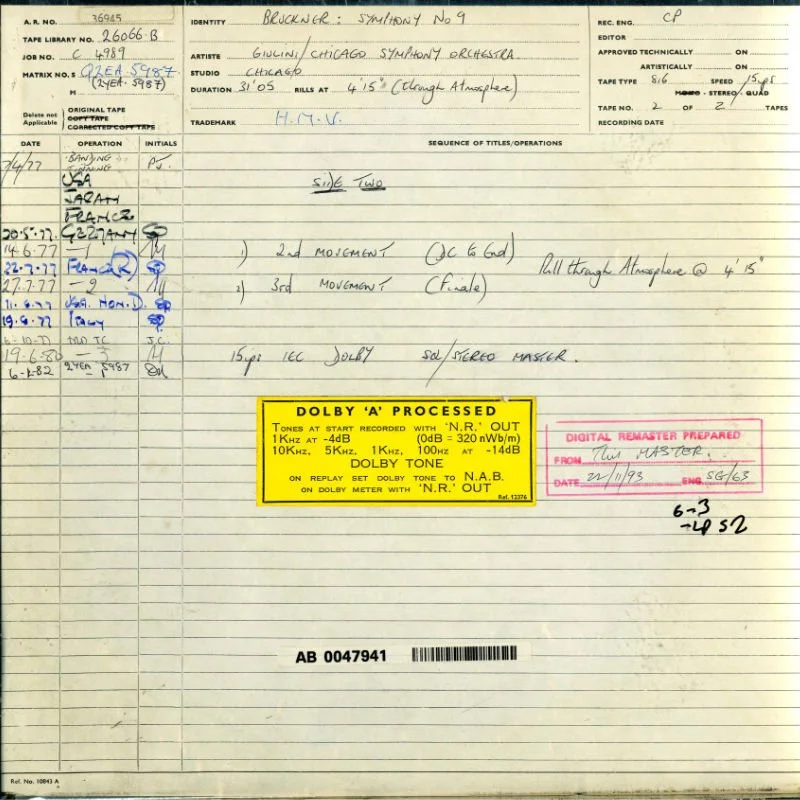 A.R. NO. 36945
TAPE LIBRARY NO. 26066-B
JOB NO. C 4989
MATRIX NO.S Q2EA 5987
(2YEA. 5987)
M
Delete not Applicable
ORIGINAL TAPE
COPY TAPE
CORRECTED COPY TAPE
IDENTITY BRUCKNER: SYMPHONY No 9
ARTISTE GIULINI/CHICAGO SYMPHONY ORCHESTRA.
STUDIO CHICAGO
DURATION 31'05 RILLS AT 4'15" (through Atmosphere)
TRADEMARK H.M.V.
REC. ENG. CP
EDITOR
APPROVED TECHNICALLY ON
ARTISTICALLY ON
TAPE TYPE 816 SPEED 15ips
MONO - STEREO/QUAD
TAPE NO. 2 OF 2 TAPES
RECORDING DATE
DATE OPERATION INITIALS SEQUENCE OF TITLES/OPERATIONS
/4/77 BANDING
USA
JAPAN
FRANCE
20.5.77. GERMANY
14-6-77 -1
22-7-77 FRANCE(R)
27.7.77 -2
USA. HON.D.
19.6.77 ITALY
J.C.
19-6-80 -3
6-1-82 2YEA 5987
SIDE TWO
1) 2nd MOVEMENT (DC to End)
2) 3rd MOVEMENT (Finale)
Rill through Atmosphere @ 4'15"
15ips IEC DOLBY SOL/STEREO MASTER.
DOLBY 'A' PROCESSED
TONES AT START RECORDED WITH 'N.R.' OUT
1KHZ AT -4dB (0dB = 320 nWb/m)
10KHZ, 5KHZ, 1KHZ, 100HZ AT -14dB
DOLBY TONE
ON REPLAY SET DOLBY TONE TO N.A.B.
ON DOLBY METER WITH 'N.R.' OUT
Ref. 12376
DIGITAL REMASTER PREPARED
FROM This MASTER.
DATE 22/11/93 ENG. SG/63
6-3
-LP S2
AB 0047941
Ref. No. 10843 A